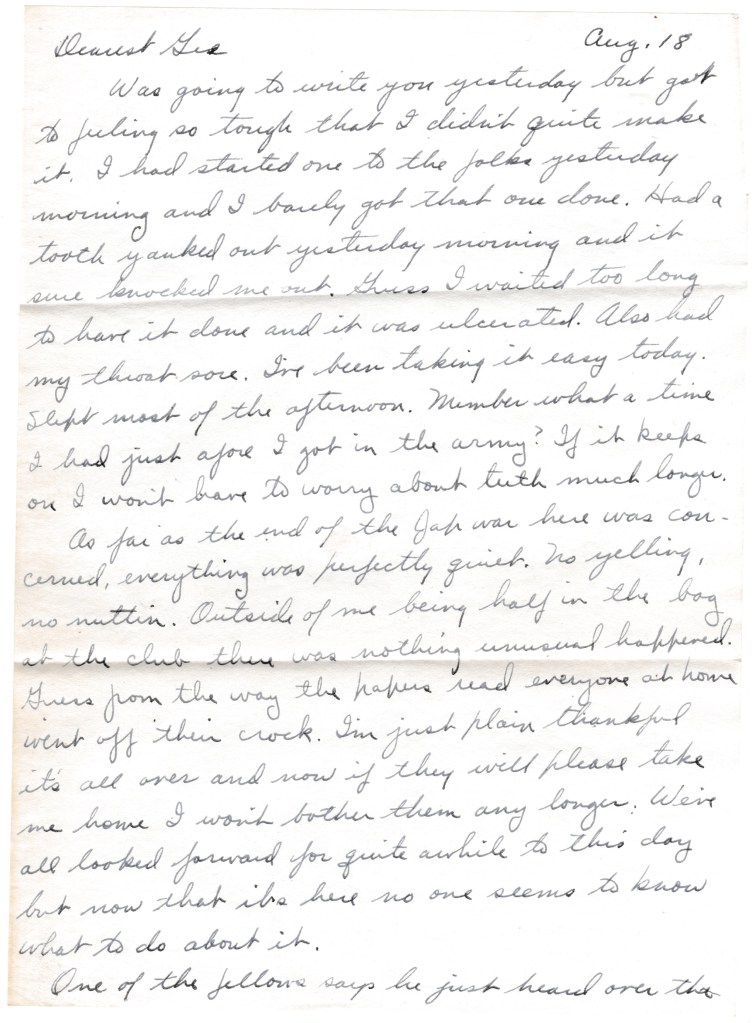 Dearest Gis
Aug. 18
Was going to write you yesterday but got
to feeling so tough that I didn't quite make
it. I had started one to the folks yesterday
morning and I barely got that one done. Had a
tooth yanked out yesterday morning and it
sure knocked me out. Guess I waited too long
to have it done and it was ulcerated. Also had
my throat sore. I've been taking it easy today.
Slept most of the afternoon. Member what a time
I had just afore I got in the army? If it keeps
on I won't have to worry about teeth much longer.
As far as the end of the Jap war here was con-
cerned, everything was perfectly quiet. No yelling,
no nuttin. Outside of me being half in the bag
at the club there was nothing unusual happened.
Guess from the way the papers read everyone at home
went off their crock. I'm just plain thankful
it's all over and now if they will please take
me home I won't bother them any longer. We've
all looked forward for quite awhile to this day
but now that its here no one seems to know
what to do about it.
One of the fellows says he just heard over the